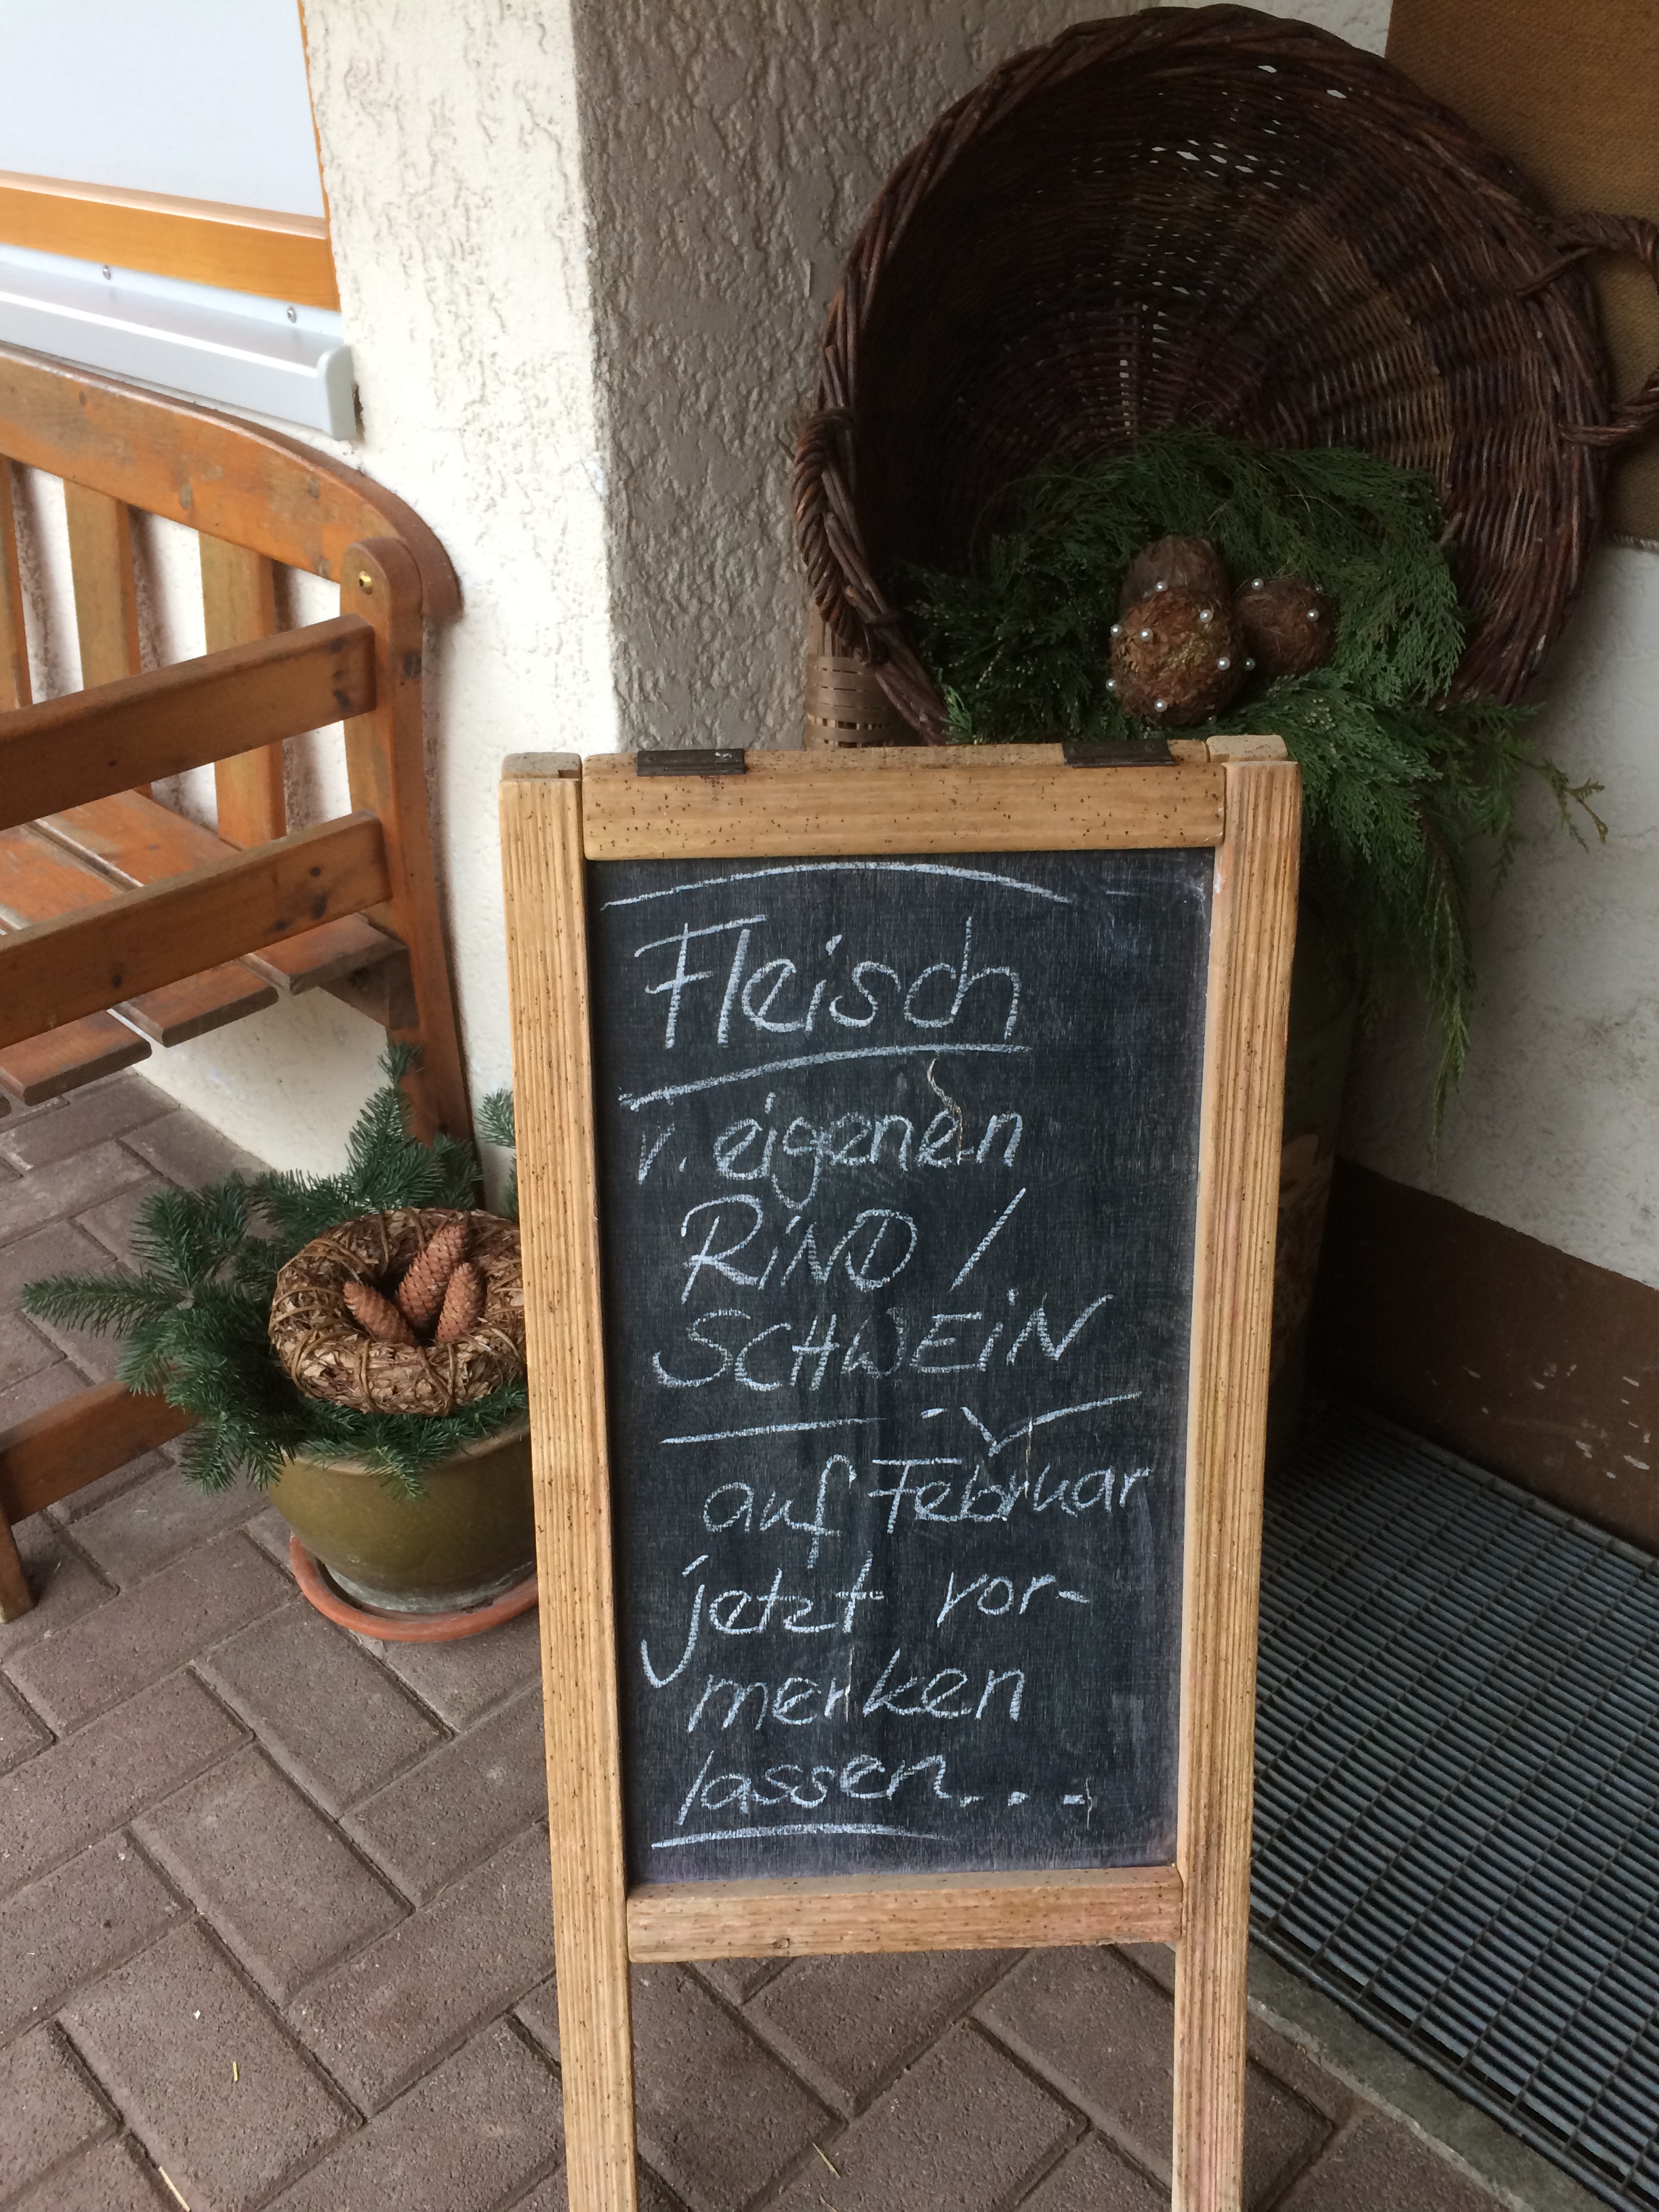 Fleisch
v. eigenen
RiND /
SCHWEiN
auf Februar
jetzt vor-
merken
lassen...